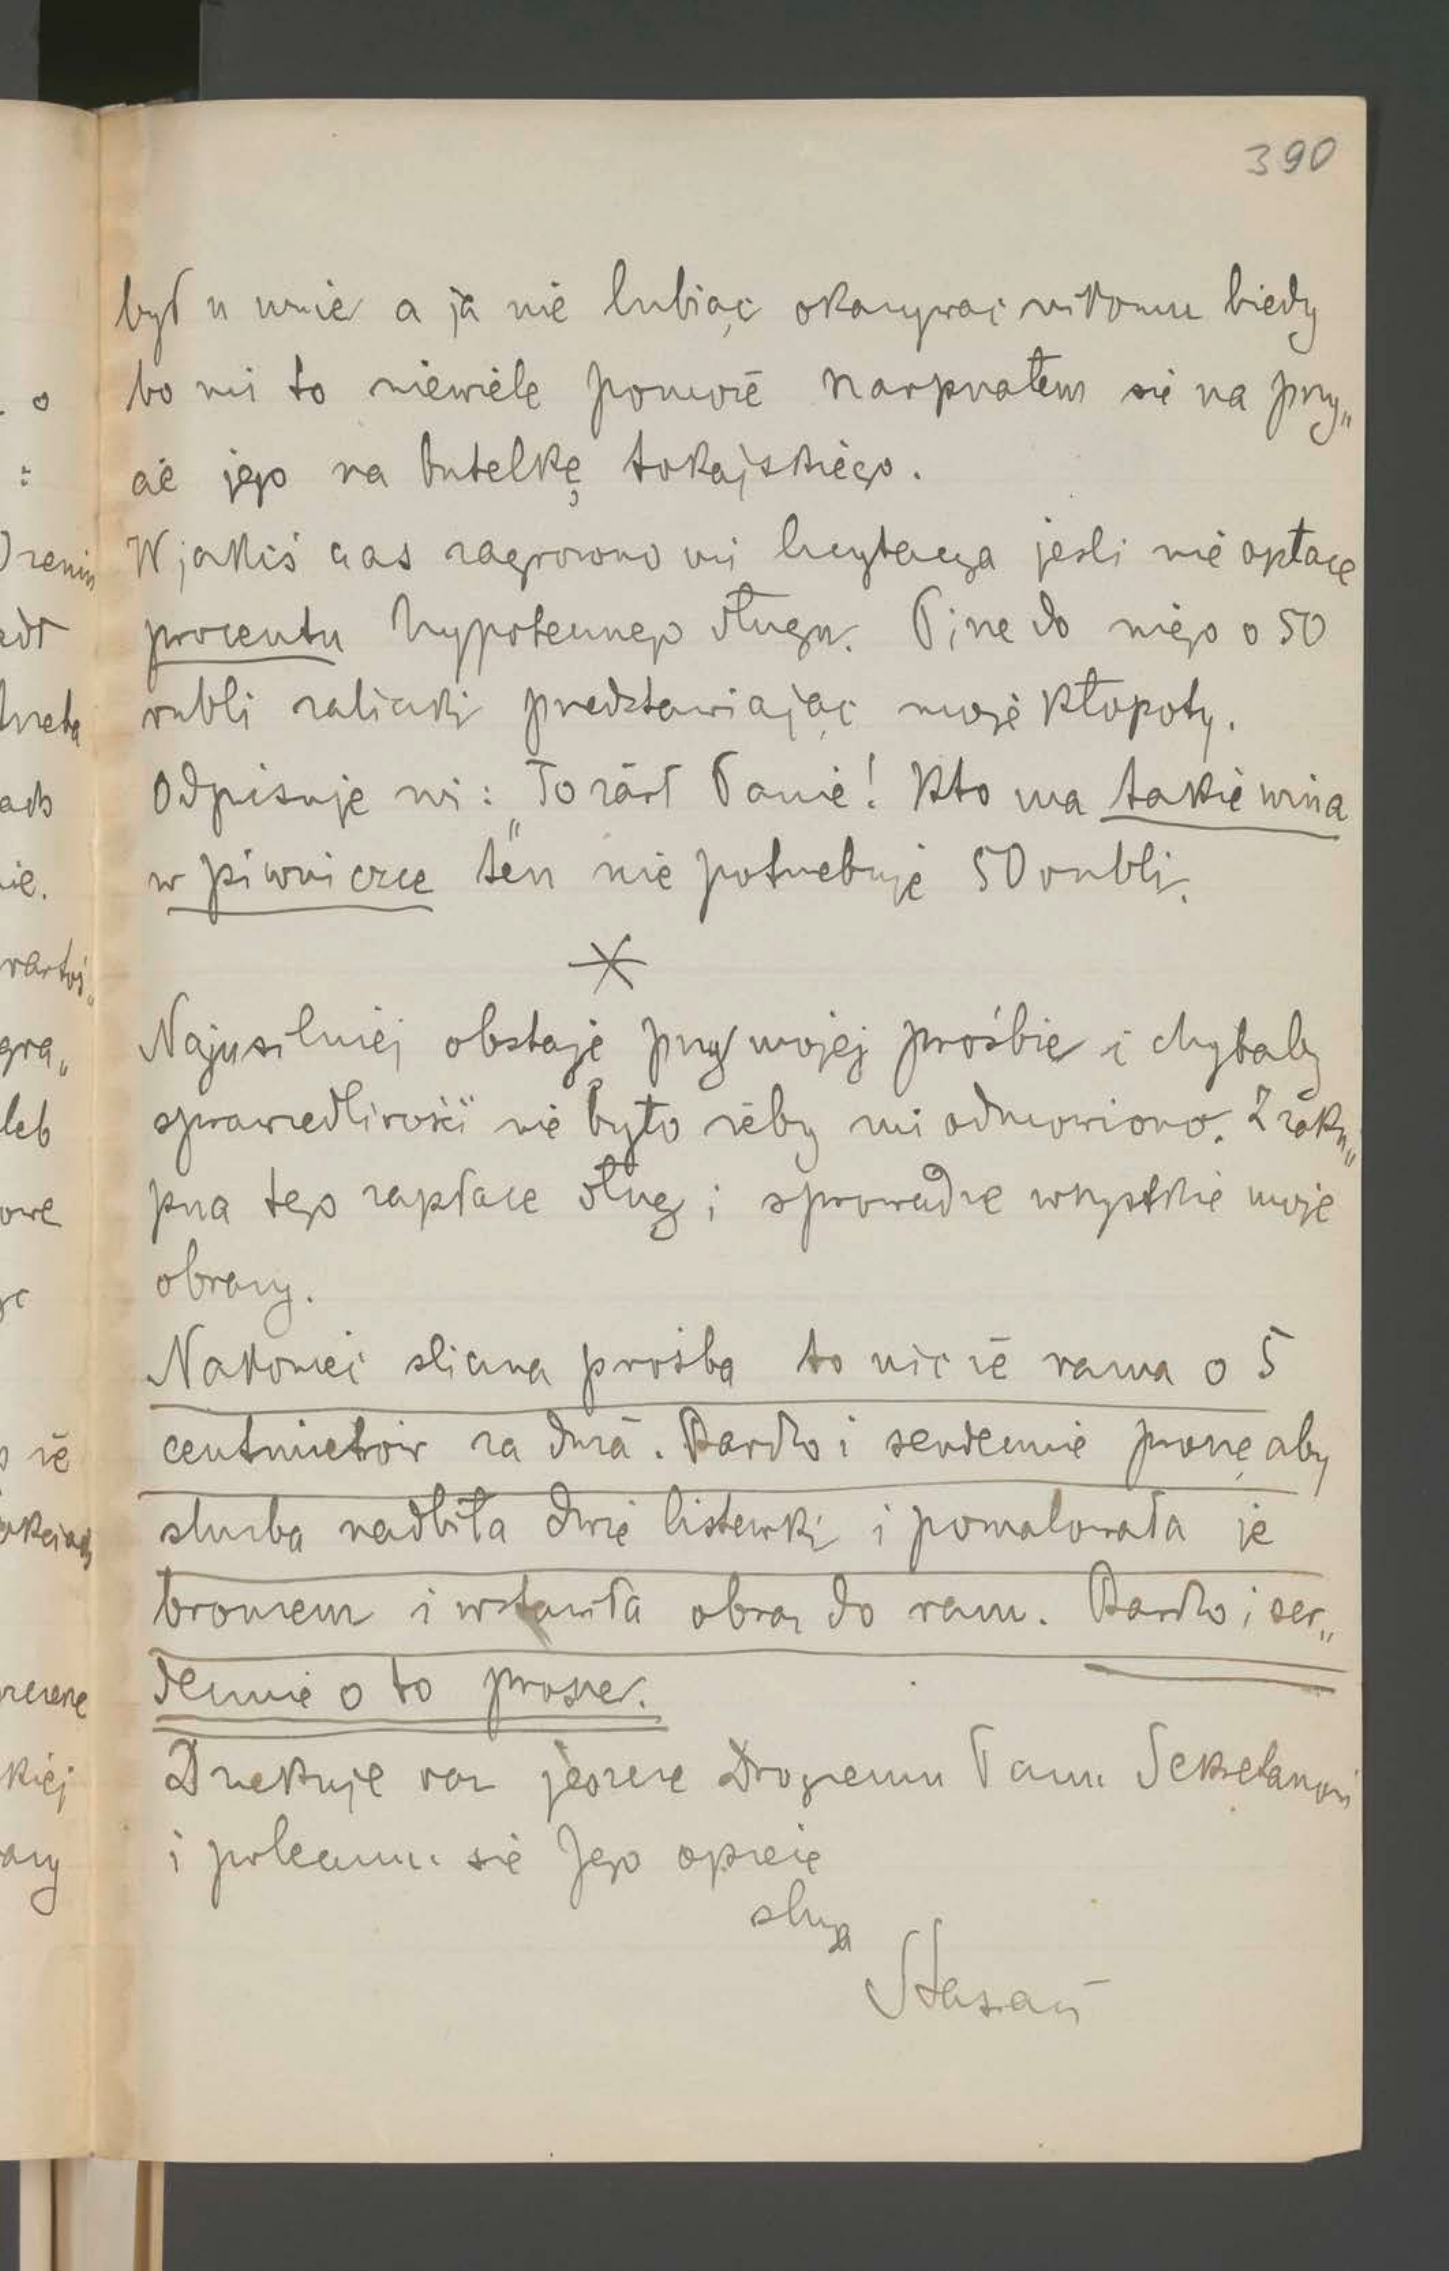 390
był u mnie a ja nie lubiąc okazywać nikomu biedy
bo mi to niewiele pomoże szarpnąłem się na przy„
cie jego na butelkę tokajskiego.
W jakiś czas zagrożono mi licytacya jeśli nie opłace
procentu hypotecznego długu. Pisze do niego o 50
rubli zaliczki przedstawiając moje kłopoty.
Odpisuje mi: „To żart Panie! Kto ma takie wina
w piwniczce ten nie potrzebuje 50 rubli.
*
Najusilniej obstaję przy mojej prośbie i chybaby
sprawiedliwości nie było żeby mi odmowiono. Z zaku„
pna tego zapłace dług i sprowadze wszystkie moje
obrazy.
Nakoniec śliczna prośba to nic że rama o 5
centmietrów za duża. Bardzo i serdecznie proszę aby
służba nadbiła dwie listewki i pomalowała je
bronzem i wstawiła obraz do ram. Bardzo i ser„
decznie o to prosze.
Dziekuje raz jeszcze Drogiemu Panu Sekretarzowi
i polecam się Jego opiece
sługa
o
:
adł
ach
nie.
gra„
leb
owe
że
kiej